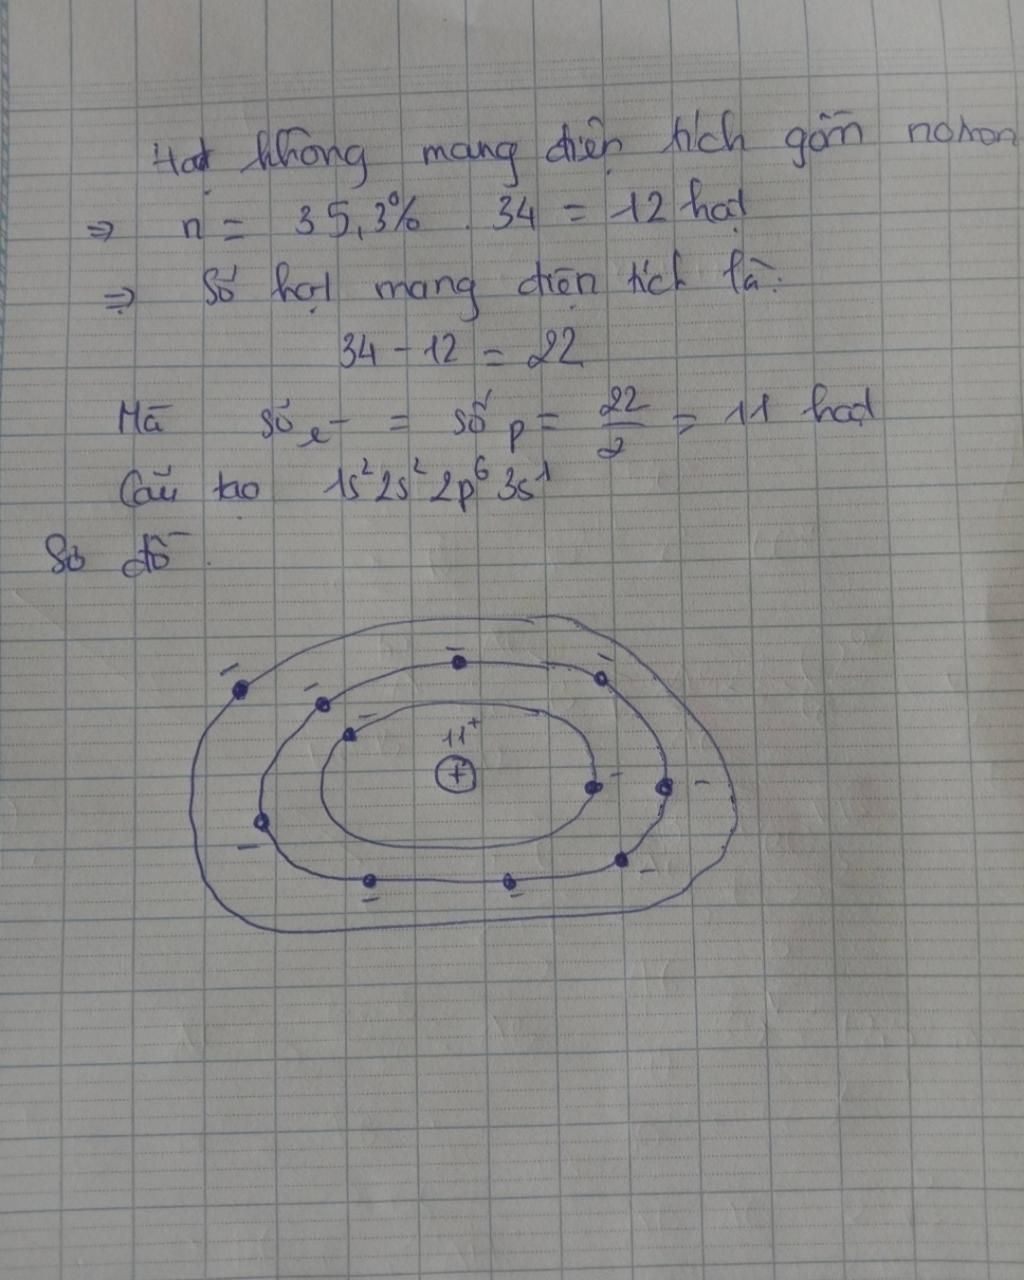 Hạt không mang điện tích gồm nơtron
⇒ n = 35,3% . 34 = 12 hạt
⇒ Số hạt mang điện tích là:
34 - 12 = 22
Mà số e⁻ = số p = 22/2 = 11 hạt
Cấu tạo 1s² 2s² 2p⁶ 3s¹
Sơ đồ.
11⁺
+